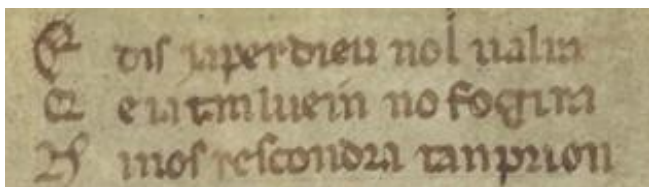 E dis ja per dieu nol ualra
Q e ia tan luein no fogira
N inos rescondra tan prion